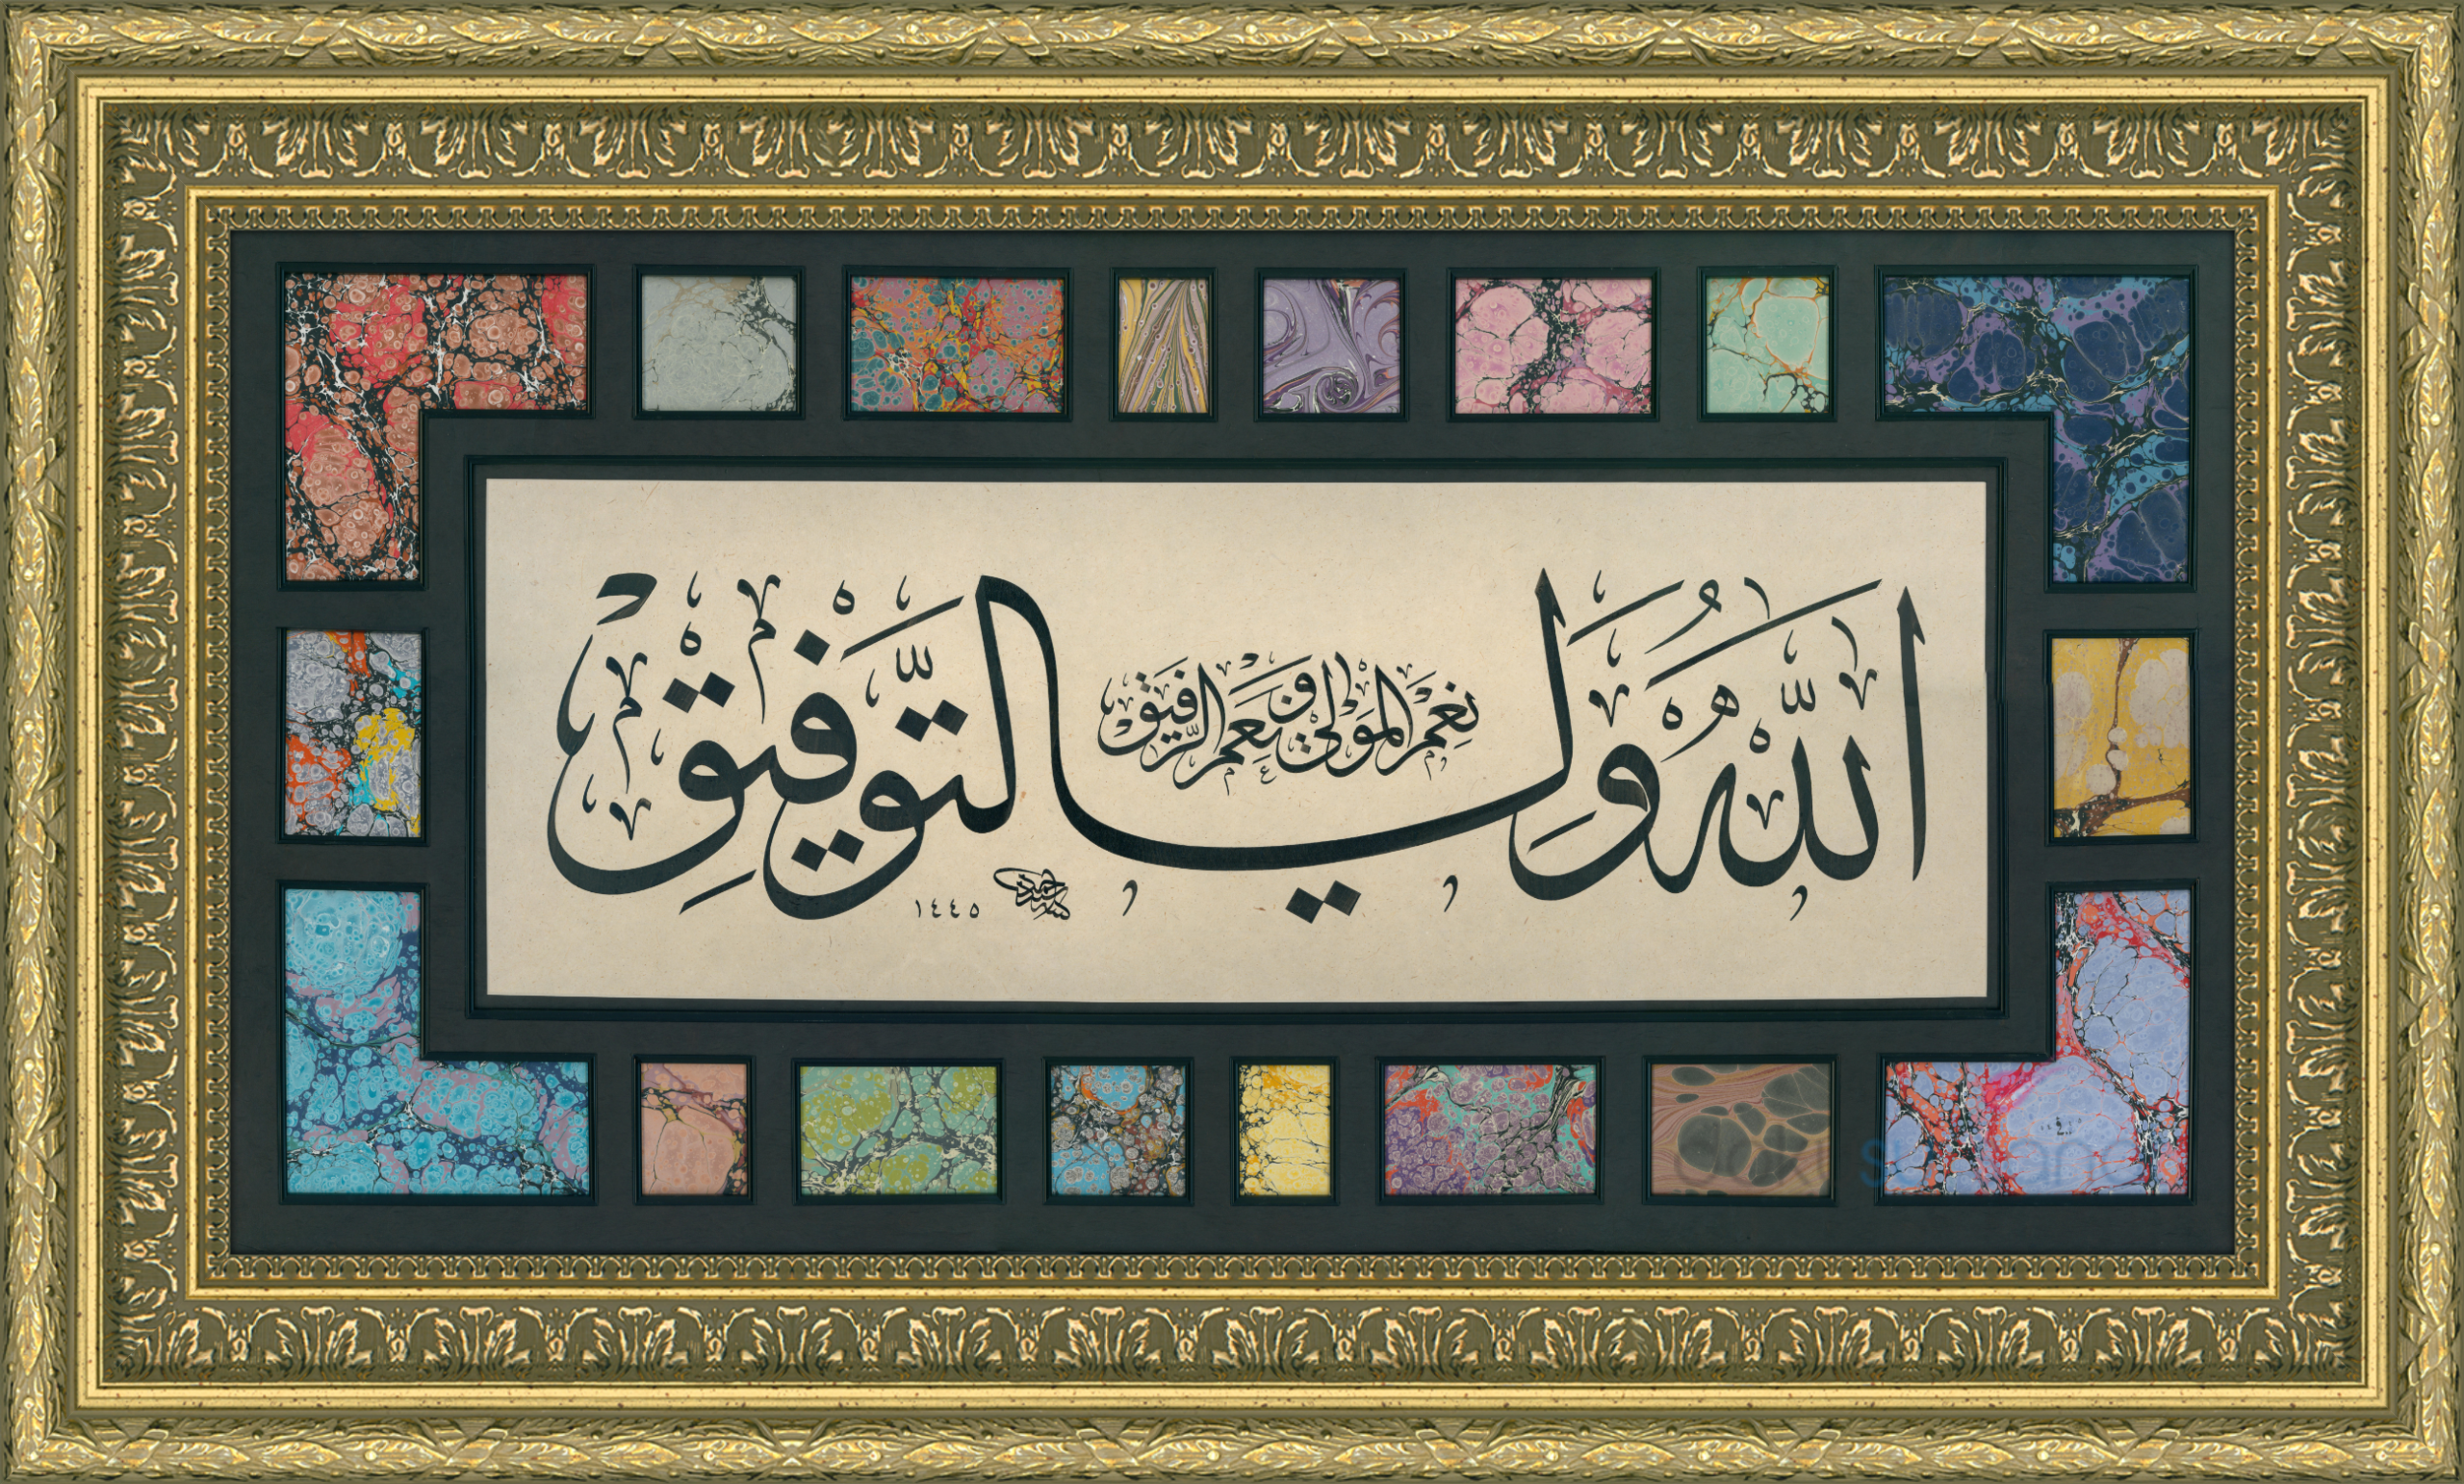 اللّٰهُ وَلِيُّ التَّوْفِيقِ
نِعْمَ الْمَوْلٰى وَنِعْمَ الرَّفِيقْ
١٤٤٥